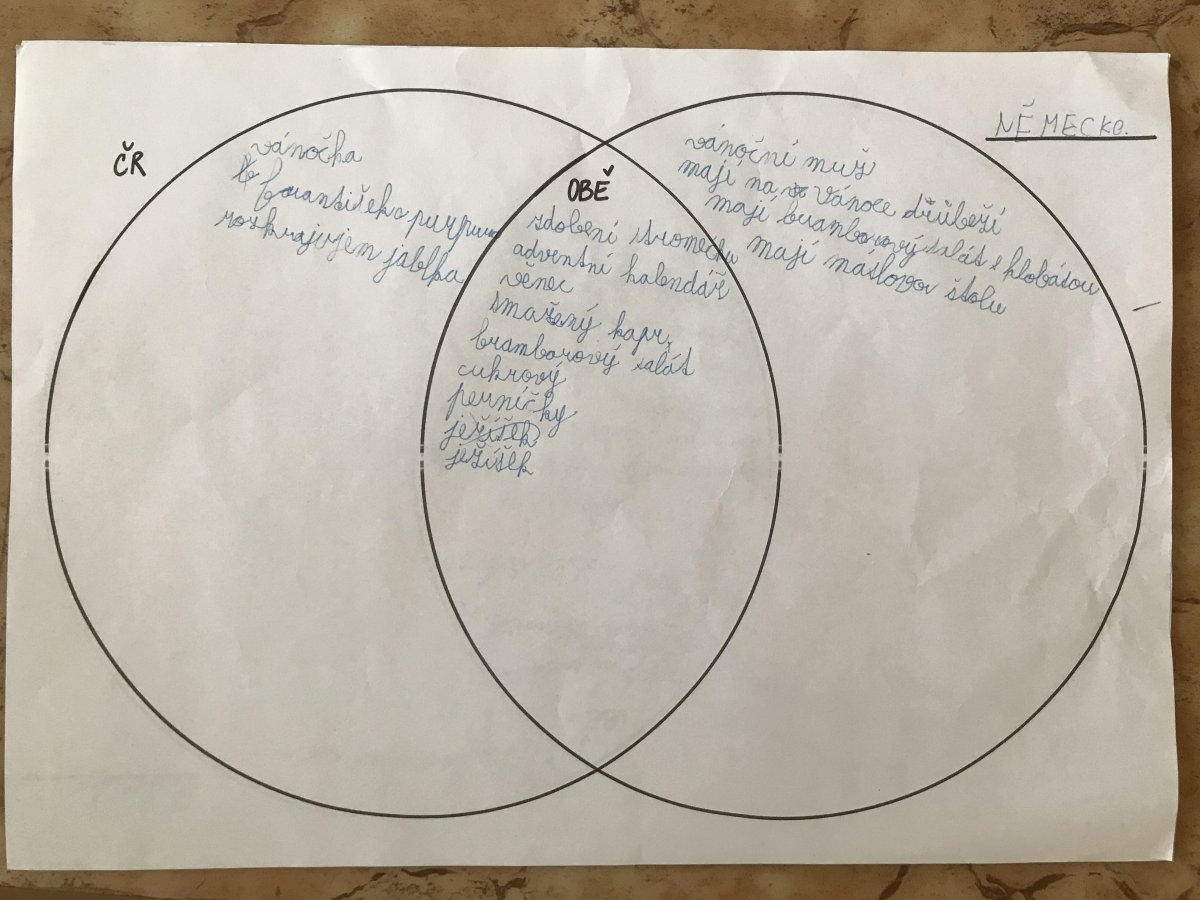 ČR
vánočka
františek a purpura
rozkrajujem jablka
OBĚ
zdobení stromečku
adventní kalendář
věnec
smažený kapr,
bramborový salát
cukrový
perníčky
ježíšek
ježíšek
NĚMECKO.
vánoční muž
mají na Vánoce drůbeží
mají bramborový salát s klobásou
mají máslovou štolu